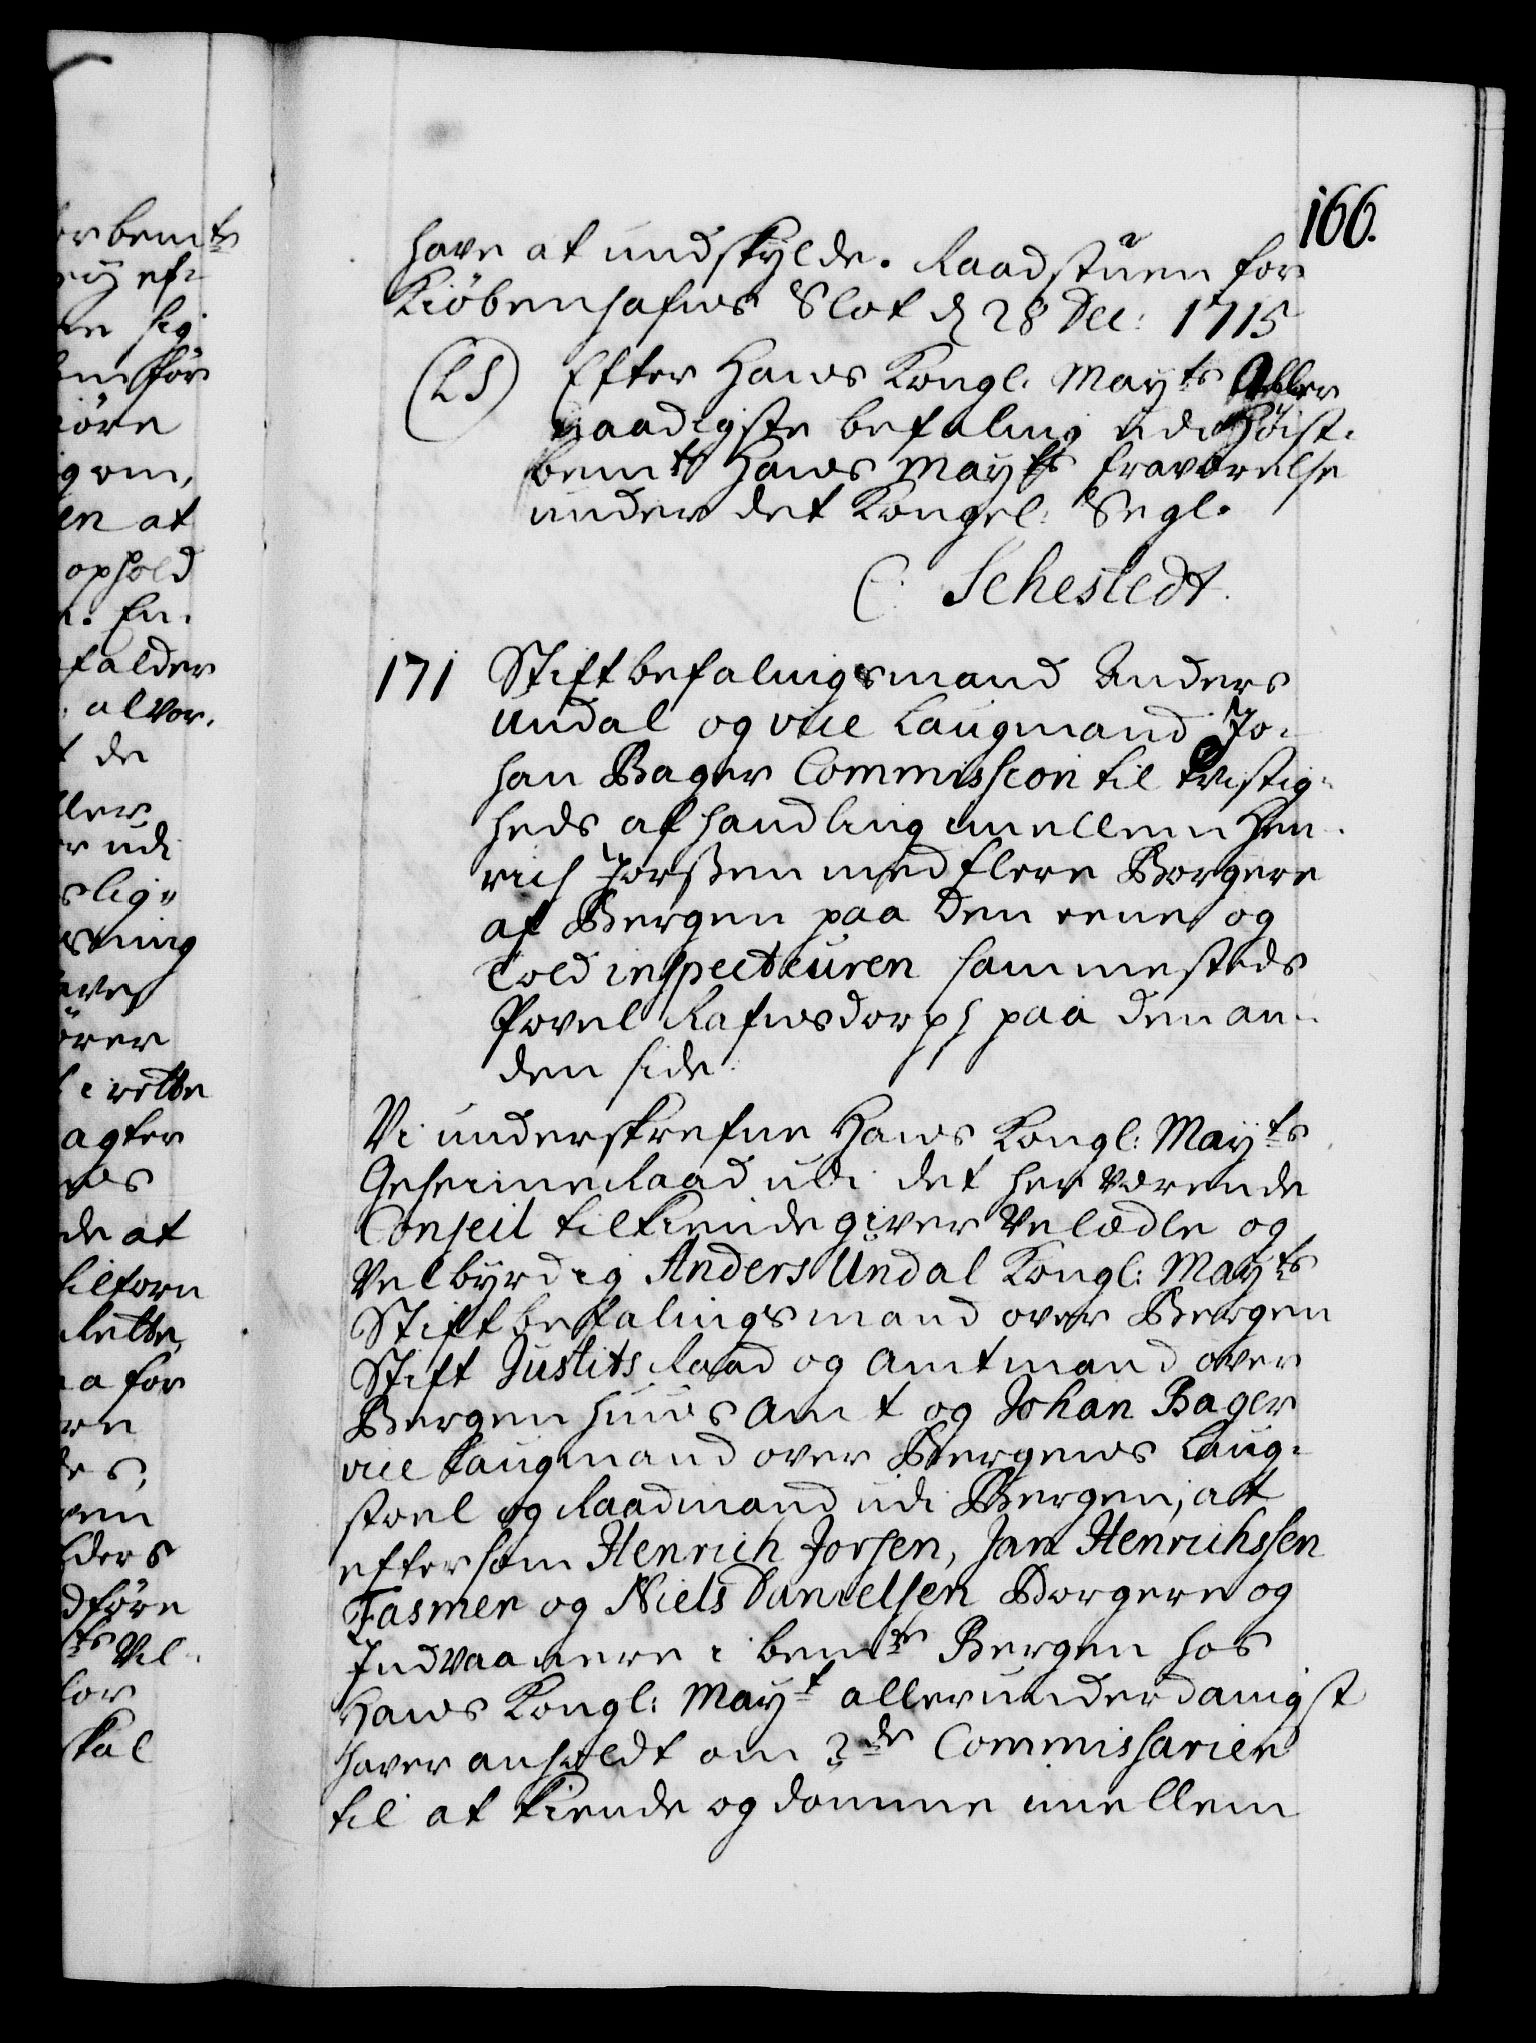 166.
have at undskylde. Raadstuen for
Kiöbenhafns Slot d 28 Dec: 1715
(LS) Efter Hans Kongl. Mayts Aller
naadigste befaling udi Höist-
bemte Hans Mayts fraværelse
under det Kongel: Segl.
C: Sehestedt.
171 Stiftbefalingsmand Anders
Undal og vice Laugmand Jo-
han Bager Commission til tvistig-
heds afhandling imellem Hen-
rich Jorssen med flere Borgere
af Bergen paa den eene og
Told inspecteuren sammesteds
Povel Rafnsdorph paa den an-
den side.
Vi underskrefne Hans Kongl: Mayts
Geheime Raad udi det herværende
Conseil tilkiendegiver Velædle og
Velbyrdig Anders Undal Kongl: Mayts
Stiftbefalingsmand over Bergen
Stift Justits Raad og Amtmand over
Bergenhuus Amt og Johan Bager
vice Laugmand over Bergens Laug-
stoel og Raadmand udi Bergen, att
eftersom Henrich Jorsen, Jan Henrichssen
Fasmer og Niels Danielsen Borgere og
Indvaanere i bemte Bergen hos
Hans Kongl: Mayt allerunderdanigst
haver anholdt om 2de Commissarier
til at kiende og domme imellem